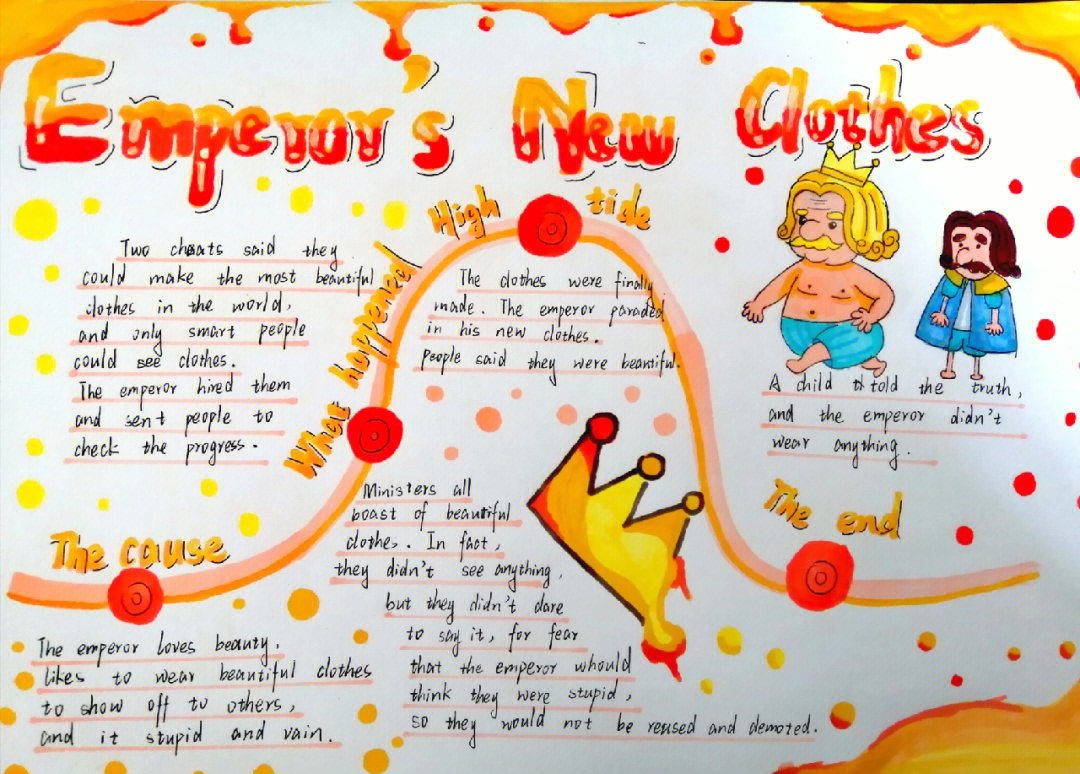 Emperor's New Clothes
The cause
The emperor loves beauty.
likes to wear beautiful clothes
to show off to others,
and it stupid and vain.
Two cheats said they
could make the most beautiful
clothes in the world,
and only smart people
could see clothes.
The emperor hired them
and sent people to
check the progress.
What happened
Ministers all
boast of beautiful
clothes. In fact,
they didn't see anything,
but they didn't dare
to say it, for fear
that the emperor whould
think they were stupid,
so they would not be reused and demoted.
High tide
The clothes were finally
made. The emperor paraded
in his new clothes.
People said they were beautiful.
The end
A child told the truth,
and the emperor didn't
wear anything.